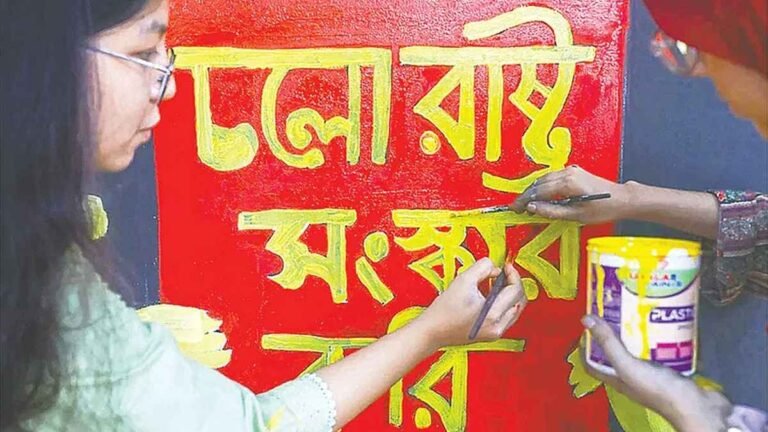 চলো রাষ্ট্র
সংস্কার
করি
PLASTIC